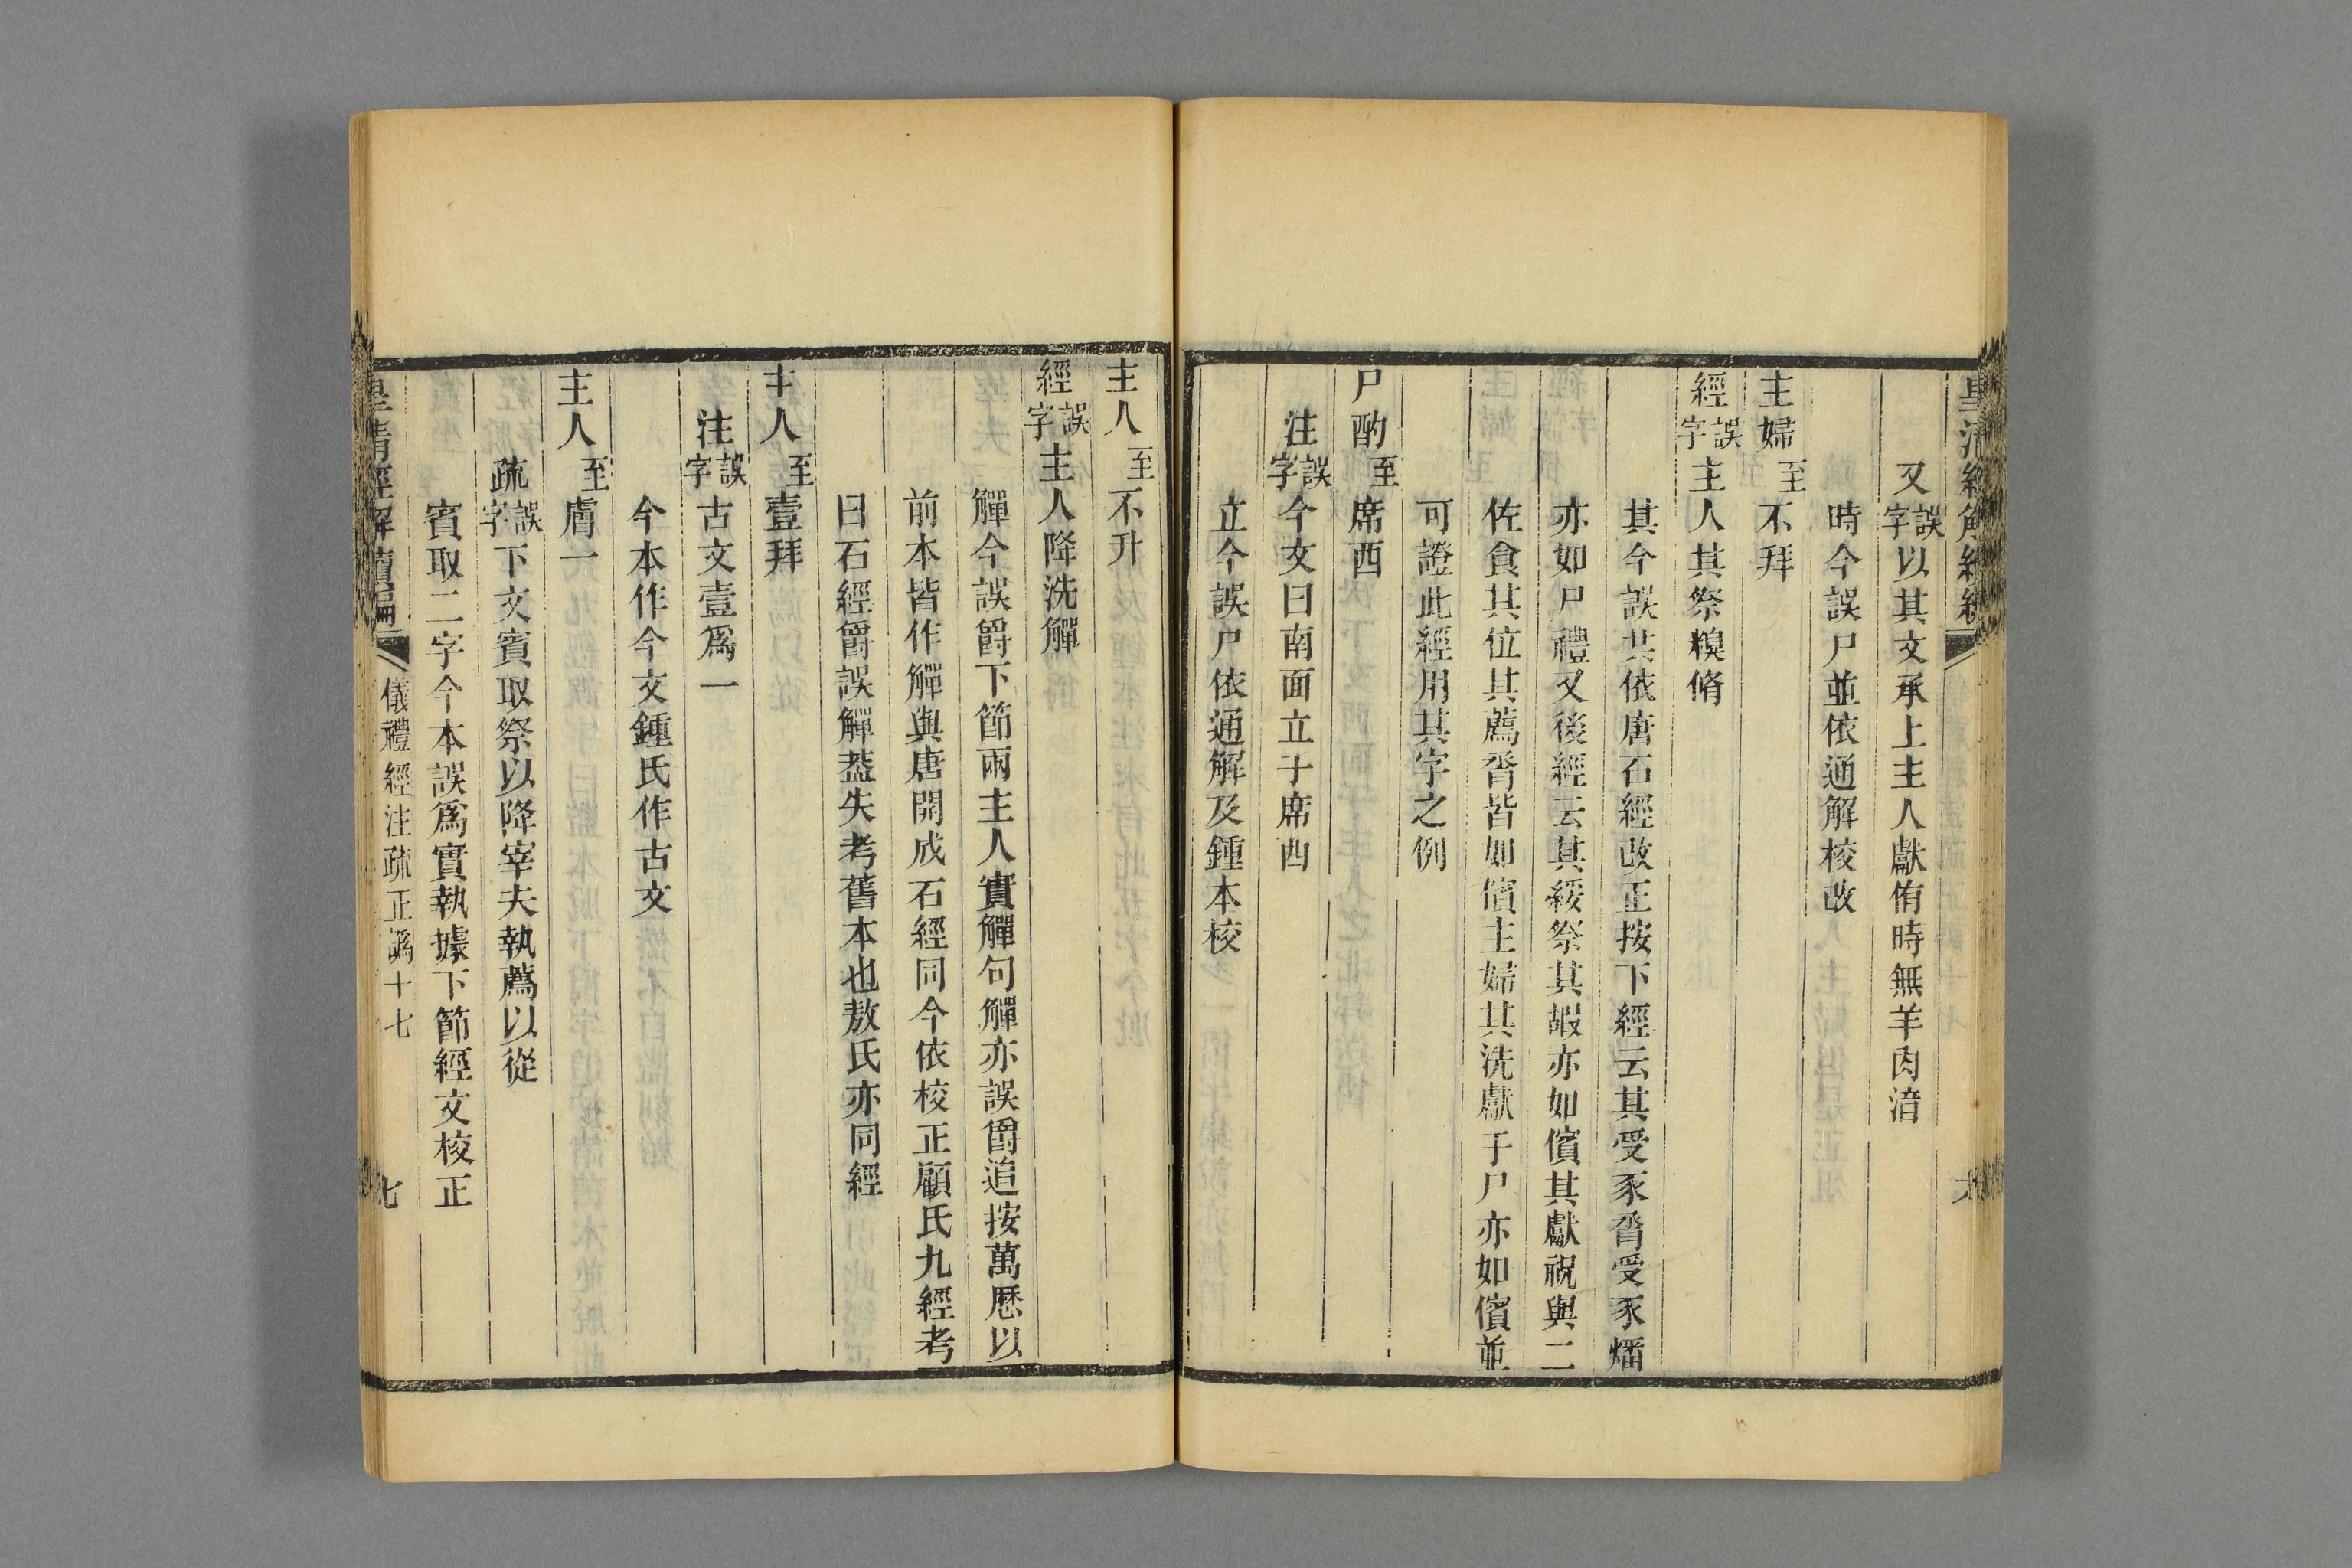 又誤字以其文承上主人獻侑時無羊肉湆
時今誤尸並依通解校改
主婦至不拜
經誤字主人其祭糗脩
其今誤共依唐石經改正按下經云其受豕脀受豕燔
亦如尸禮又後經云其綏祭其嘏亦如儐其獻祝與二
佐食其位其薦脀皆如儐主婦其洗獻于尸亦如儐並
可證此經用其字之例
尸酌至席西
注誤字今文曰南面立于席西
立今誤尸依通解及鍾本校
主人至不升
經誤字主人降洗觶
觶今誤爵下節兩主人實觶句觶亦誤爵追按萬厯以
前本皆作觶與唐開成石經同今依校正顧氏九經考
曰石經爵誤觶葢失考舊本也敖氏亦同經
主人至壹拜
注誤字古文壹爲一
今本作今文鍾氏作古文
主人至膚一
疏誤字下文賓取祭以降宰夫執薦以從
賓取二字今本誤爲實執據下節經文校正
皇清經解續編 儀禮經注疏正譌十七 七